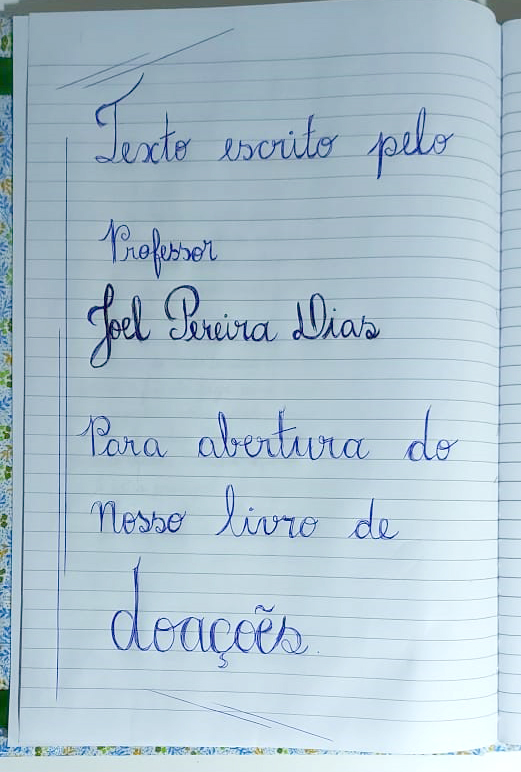 Texto escrito pelo
Professor
Joel Pereira Dias
Para abertura do
nosso livro de
doações.